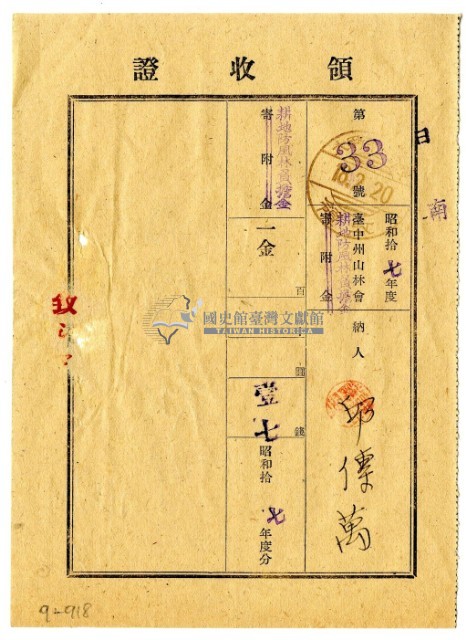 領收證
南
第33號
18.2.20
昭和拾七年度
臺中州山林會
寄附金
耕地防風林負擔金
納人
邱傳萬
寄附金
耕地防風林負擔金
一金
百
圓
錢
壹七
昭和拾七年度分
國史館臺灣文獻館
TAIWAN HISTORICA
9-2918